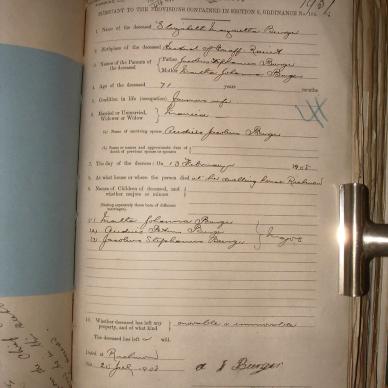 PURSUANT TO THE PROVISIONS CONTAINED IN SECTION 9, ORDINANCE No. 104.
1. Name of the deceased Elizabeth Margaretha Burger
2. Birthplace of the deceased District of Graaff Reinet
3. Names of the Parents of the deceased
Father Jacobus Stephanus Burger
Mother Martha Johanna Burger
4. Age of the deceased 71 years months
5. Condition in life (occupation) Farmers wife
6. Married or Unmarried, Widower or Widow Married
(a) Name of surviving spouse Andries Jacobus Burger
(b) Name or names and approximate date of death of previous spouse or spouses
7. The day of the decease: On 13 February 1908
8. At what house or where the person died at the dwelling house Richmond
9. Names of Children of deceased, and whether majors or minors
(Stating separately those born of different marriages).
(1) Martha Johanna Burger
(2) Andries Burger
(3) Jacobus Stephanus Burger
Majors
10. Whether deceased has left any property, and of what kind movable & immovable
The deceased has left will.
Dated at Richmond
July 1908
A J Burger